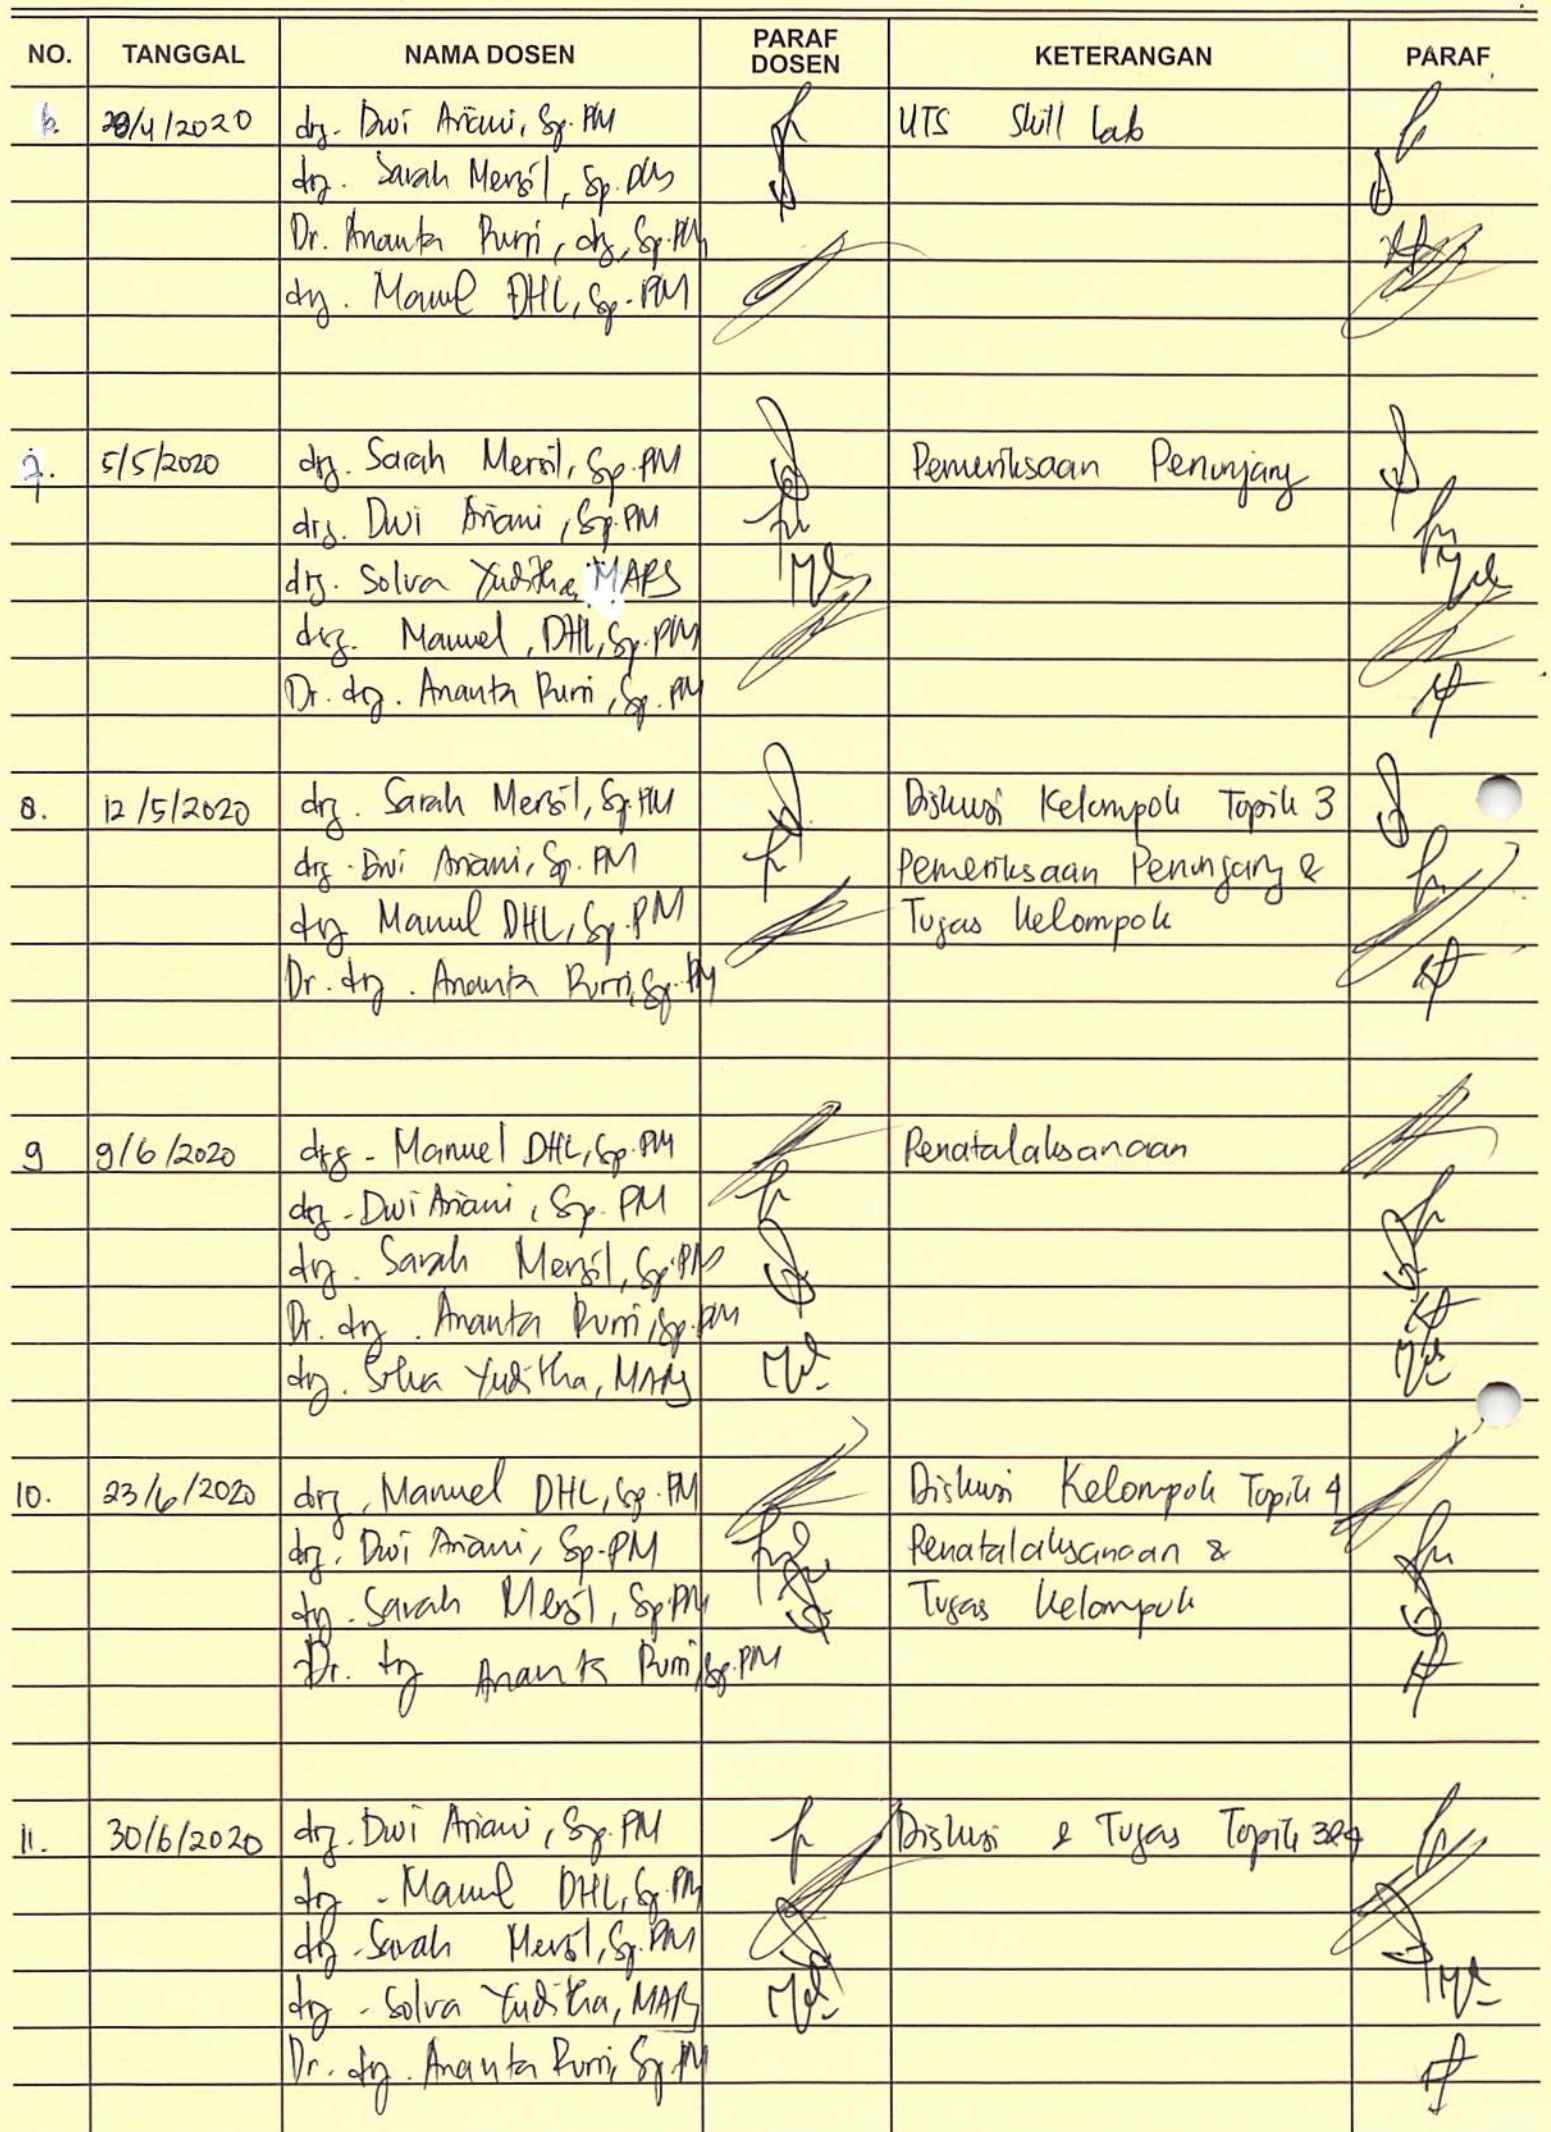 NO. TANGGAL NAMA DOSEN PARAF DOSEN KETERANGAN PARAF
6. 28/4/2020 drg. Dwi Ariani, Sp. PM UTS Skill Lab
drg. Sarah Mersil, Sp. PM
Dr. Ananta Rurri, drg, Sp. PM
drg. Manuel DHL, Sp. PM
7. 5/5/2020 drg. Sarah Mersil, Sp. PM Pemeriksaan Penunjang
drg. Dwi Ariani, Sp. PM
drg. Solva Yuditha, MARS
drg. Manuel, DHL, Sp. PM
Dr. drg. Ananta Rurri, Sp. PM
8. 12/5/2020 drg. Sarah Mersil, Sp. PM Diskusi Kelompok Topik 3
drg. Dwi Ariani, Sp. PM Pemeriksaan Penunjang &
drg Manuel DHL, Sp. PM Tugas Kelompok
Dr. drg. Ananta Rurri, Sp. PM
9 9/6/2020 drg - Manuel DHL, Sp. PM Penatalaksanaan
drg - Dwi Ariani, Sp. PM
drg. Sarah Mersil, Sp. PM
Dr. drg. Ananta Rurri, Sp. PM
drg. Solva Yuditha, MARS
10. 23/6/2020 drg, Manuel DHL, Sp. PM Diskusi Kelompok Topik 4
drg. Dwi Ariani, Sp. PM Penatalaksanaan &
drg. Sarah Mersil, Sp. PM Tugas Kelompok
Dr. drg Ananta Rurri, Sp. PM
11. 30/6/2020 drg. Dwi Ariani, Sp. PM Diskusi & Tugas Topik 3&4
drg - Manuel DHL, Sp. PM
drg - Sarah Mersil, Sp. PM
drg - Solva Yuditha, MARS
Dr. drg. Ananta Rurri, Sp. PM